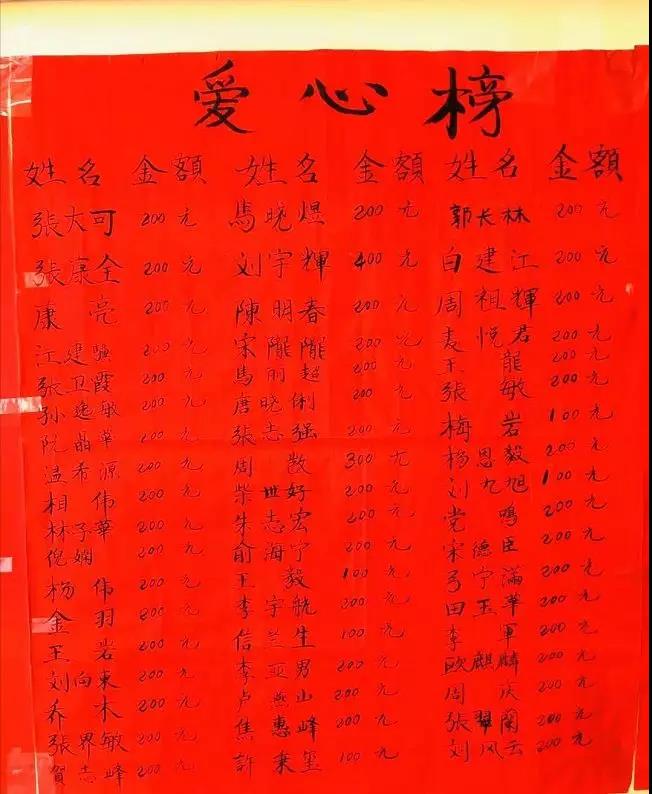 爱心榜
姓名 金額 姓名 金額 姓名 金額
張大可 200元 馬曉煜 200元 郭长林 200元
張康全 200元 刘宇輝 400元 白建江 200元
康亮 200元 陳明春 200元 周祖輝 200元
江建強 200元 宋隴隴 200元 麦悦君 200元
張卫霞 200元 馬丽超 200元 王龍 200元
孙逸敏 200元 唐晓俐 200元 張敏 200元
阮晶華 200元 張志强 200元 梅岩 100元
温希源 200元 周数 300元 杨恩毅 200元
相伟 200元 柴世好 200元 刘九旭 100元
林子華 200元 朱志宏 200元 党鳴 200元
倪娴 200元 俞海宁 200元 宋德臣 200元
杨伟 200元 王毅 100元 弓宁满 200元
金羽 200元 李宇航 200元 田玉華 200元
王岩 200元 信兰生 100元 李軍 200元
刘向東 200元 李亚男 200元 欧麒麟 200元
乔木 200元 卢燕山 200元 周庆 200元
張界敏 200元 焦惠峰 200元 張翠蘭 200元
賀志峰 200元 許秉玺 100元 刘风云 200元